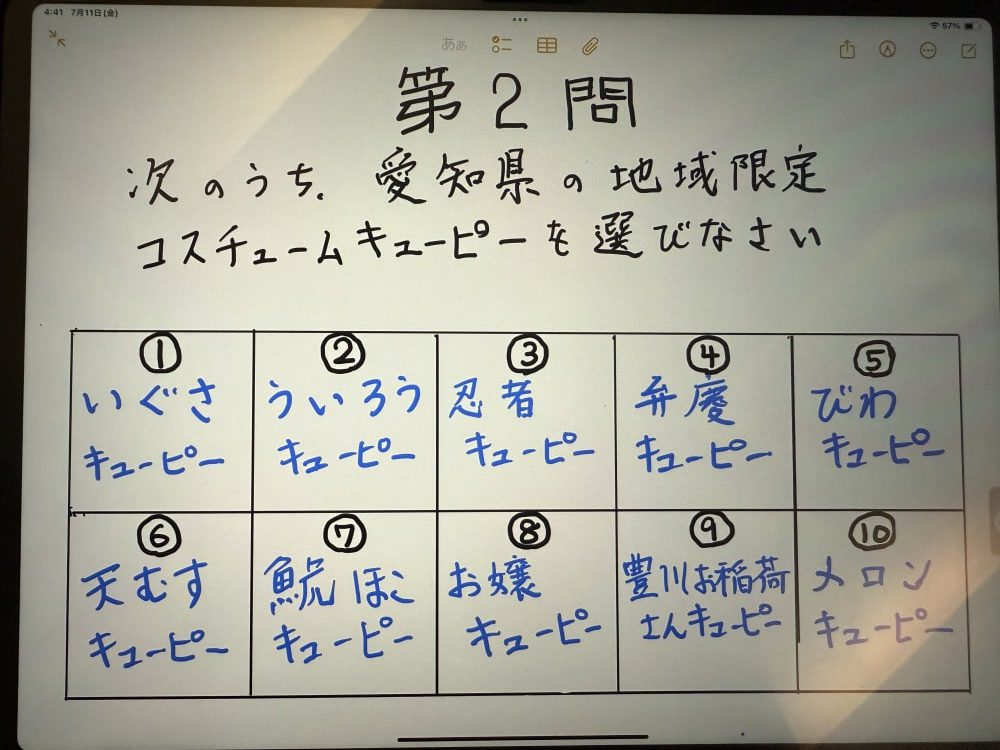 4:41 7月11日(金)
57%
あぁ
第2問
次のうち、愛知県の地域限定
コスチュームキューピーを選びなさい
①
いぐさ
キューピー
②
ういろう
キューピー
③
忍者
キューピー
④
弁慶
キューピー
⑤
びわ
キューピー
⑥
天むす
キューピー
⑦
鯱ほこ
キューピー
⑧
お嬢
キューピー
⑨
豊川お稲荷
さんキューピー
⑩
メロン
キューピー